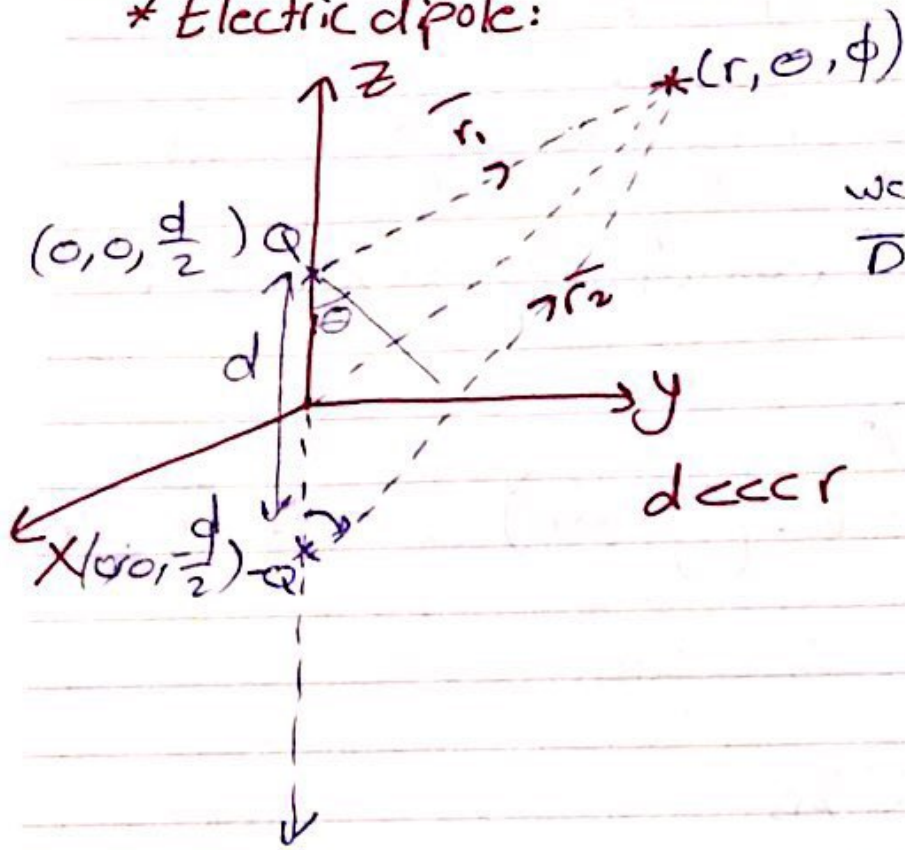 * Electric dipole:
z
(r, θ, ϕ)
r₁
(0,0,d/2) Q
r₂
θ
d
y
d<<<r
X
(0,0,-d/2) -Q
D